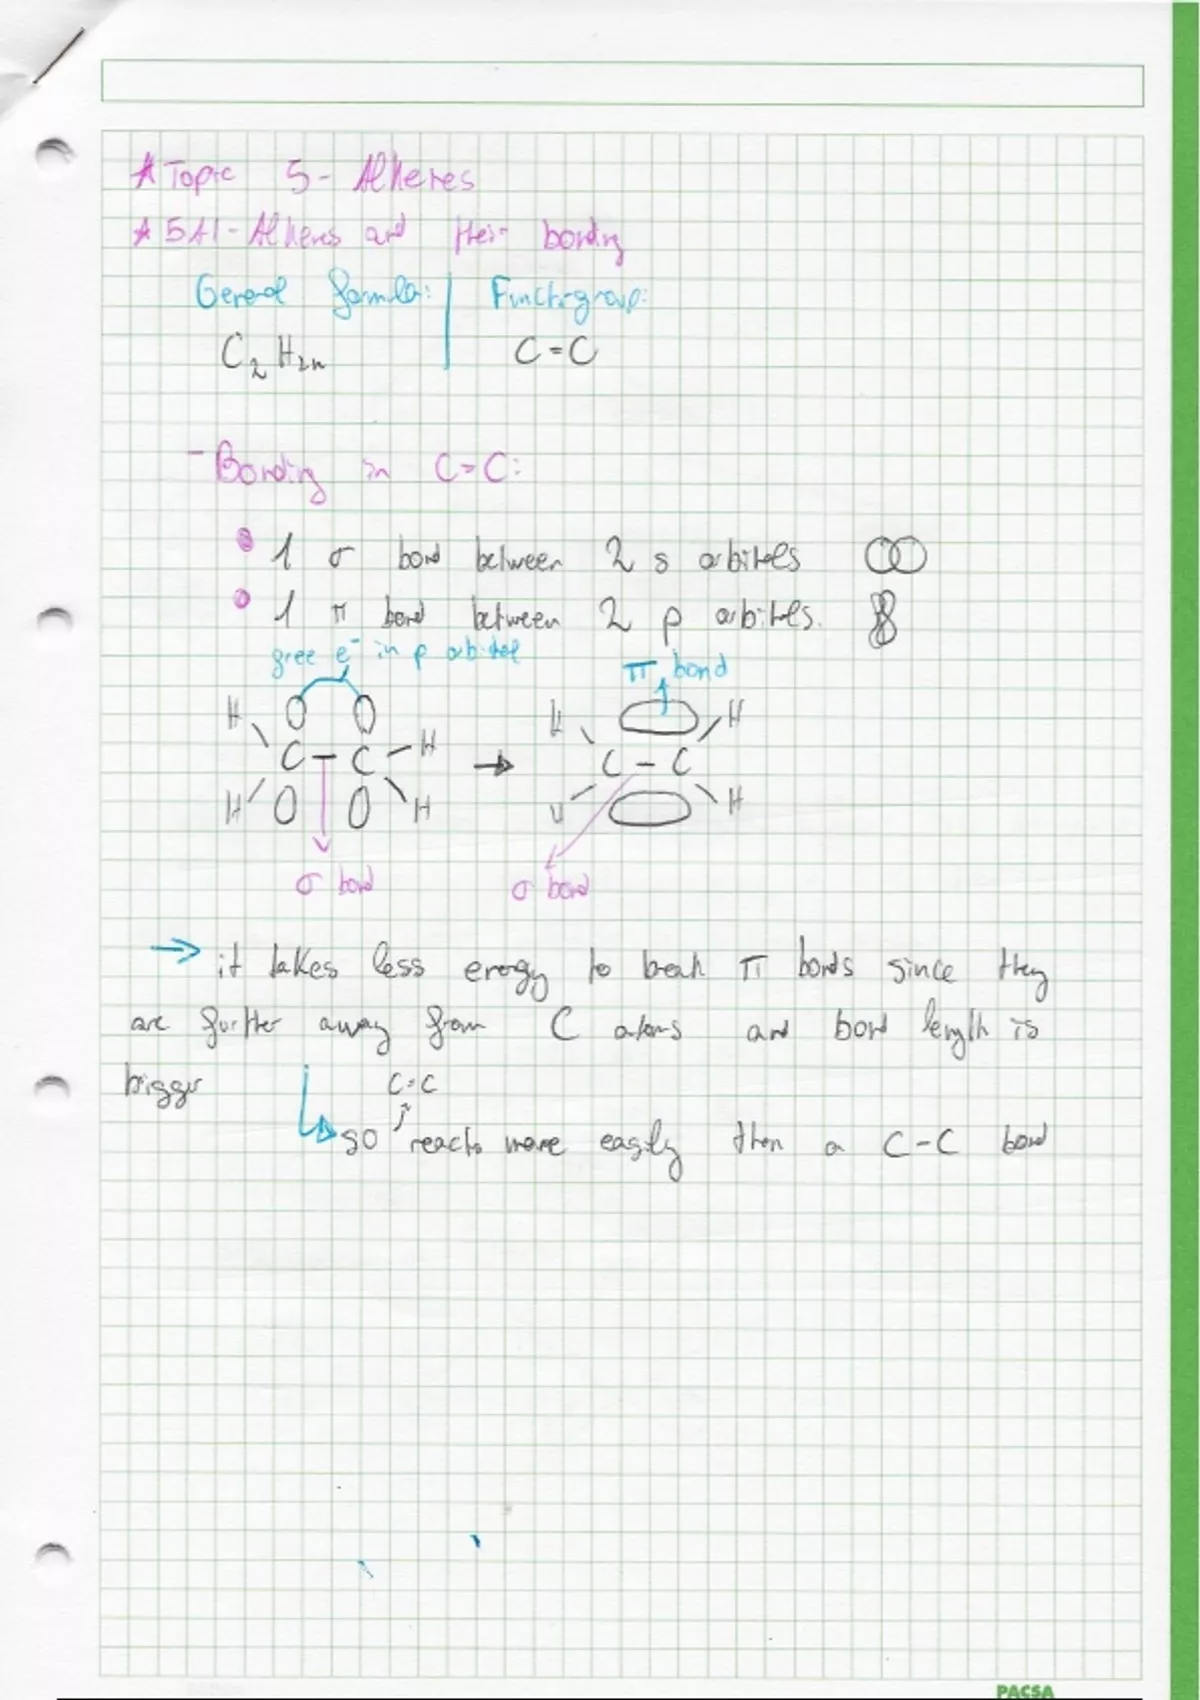 * Topic 5 - Alkenes
* 5A1 - Alkenes and their bonding
General formula: Funct. group:
C₂H₂ₙ C=C
- Bonding in C=C:
1 σ bond between 2 s orbitals
1 π bond between 2 p orbitals.
free e⁻ in p orbital π bond
H H H
C - C H → C - C
H H H H
σ bond σ bond
→ it takes less energy to break π bonds since they
are further away from C atoms and bond length is
bigger C=C
so reacts more easily then a C-C bond
PACSA